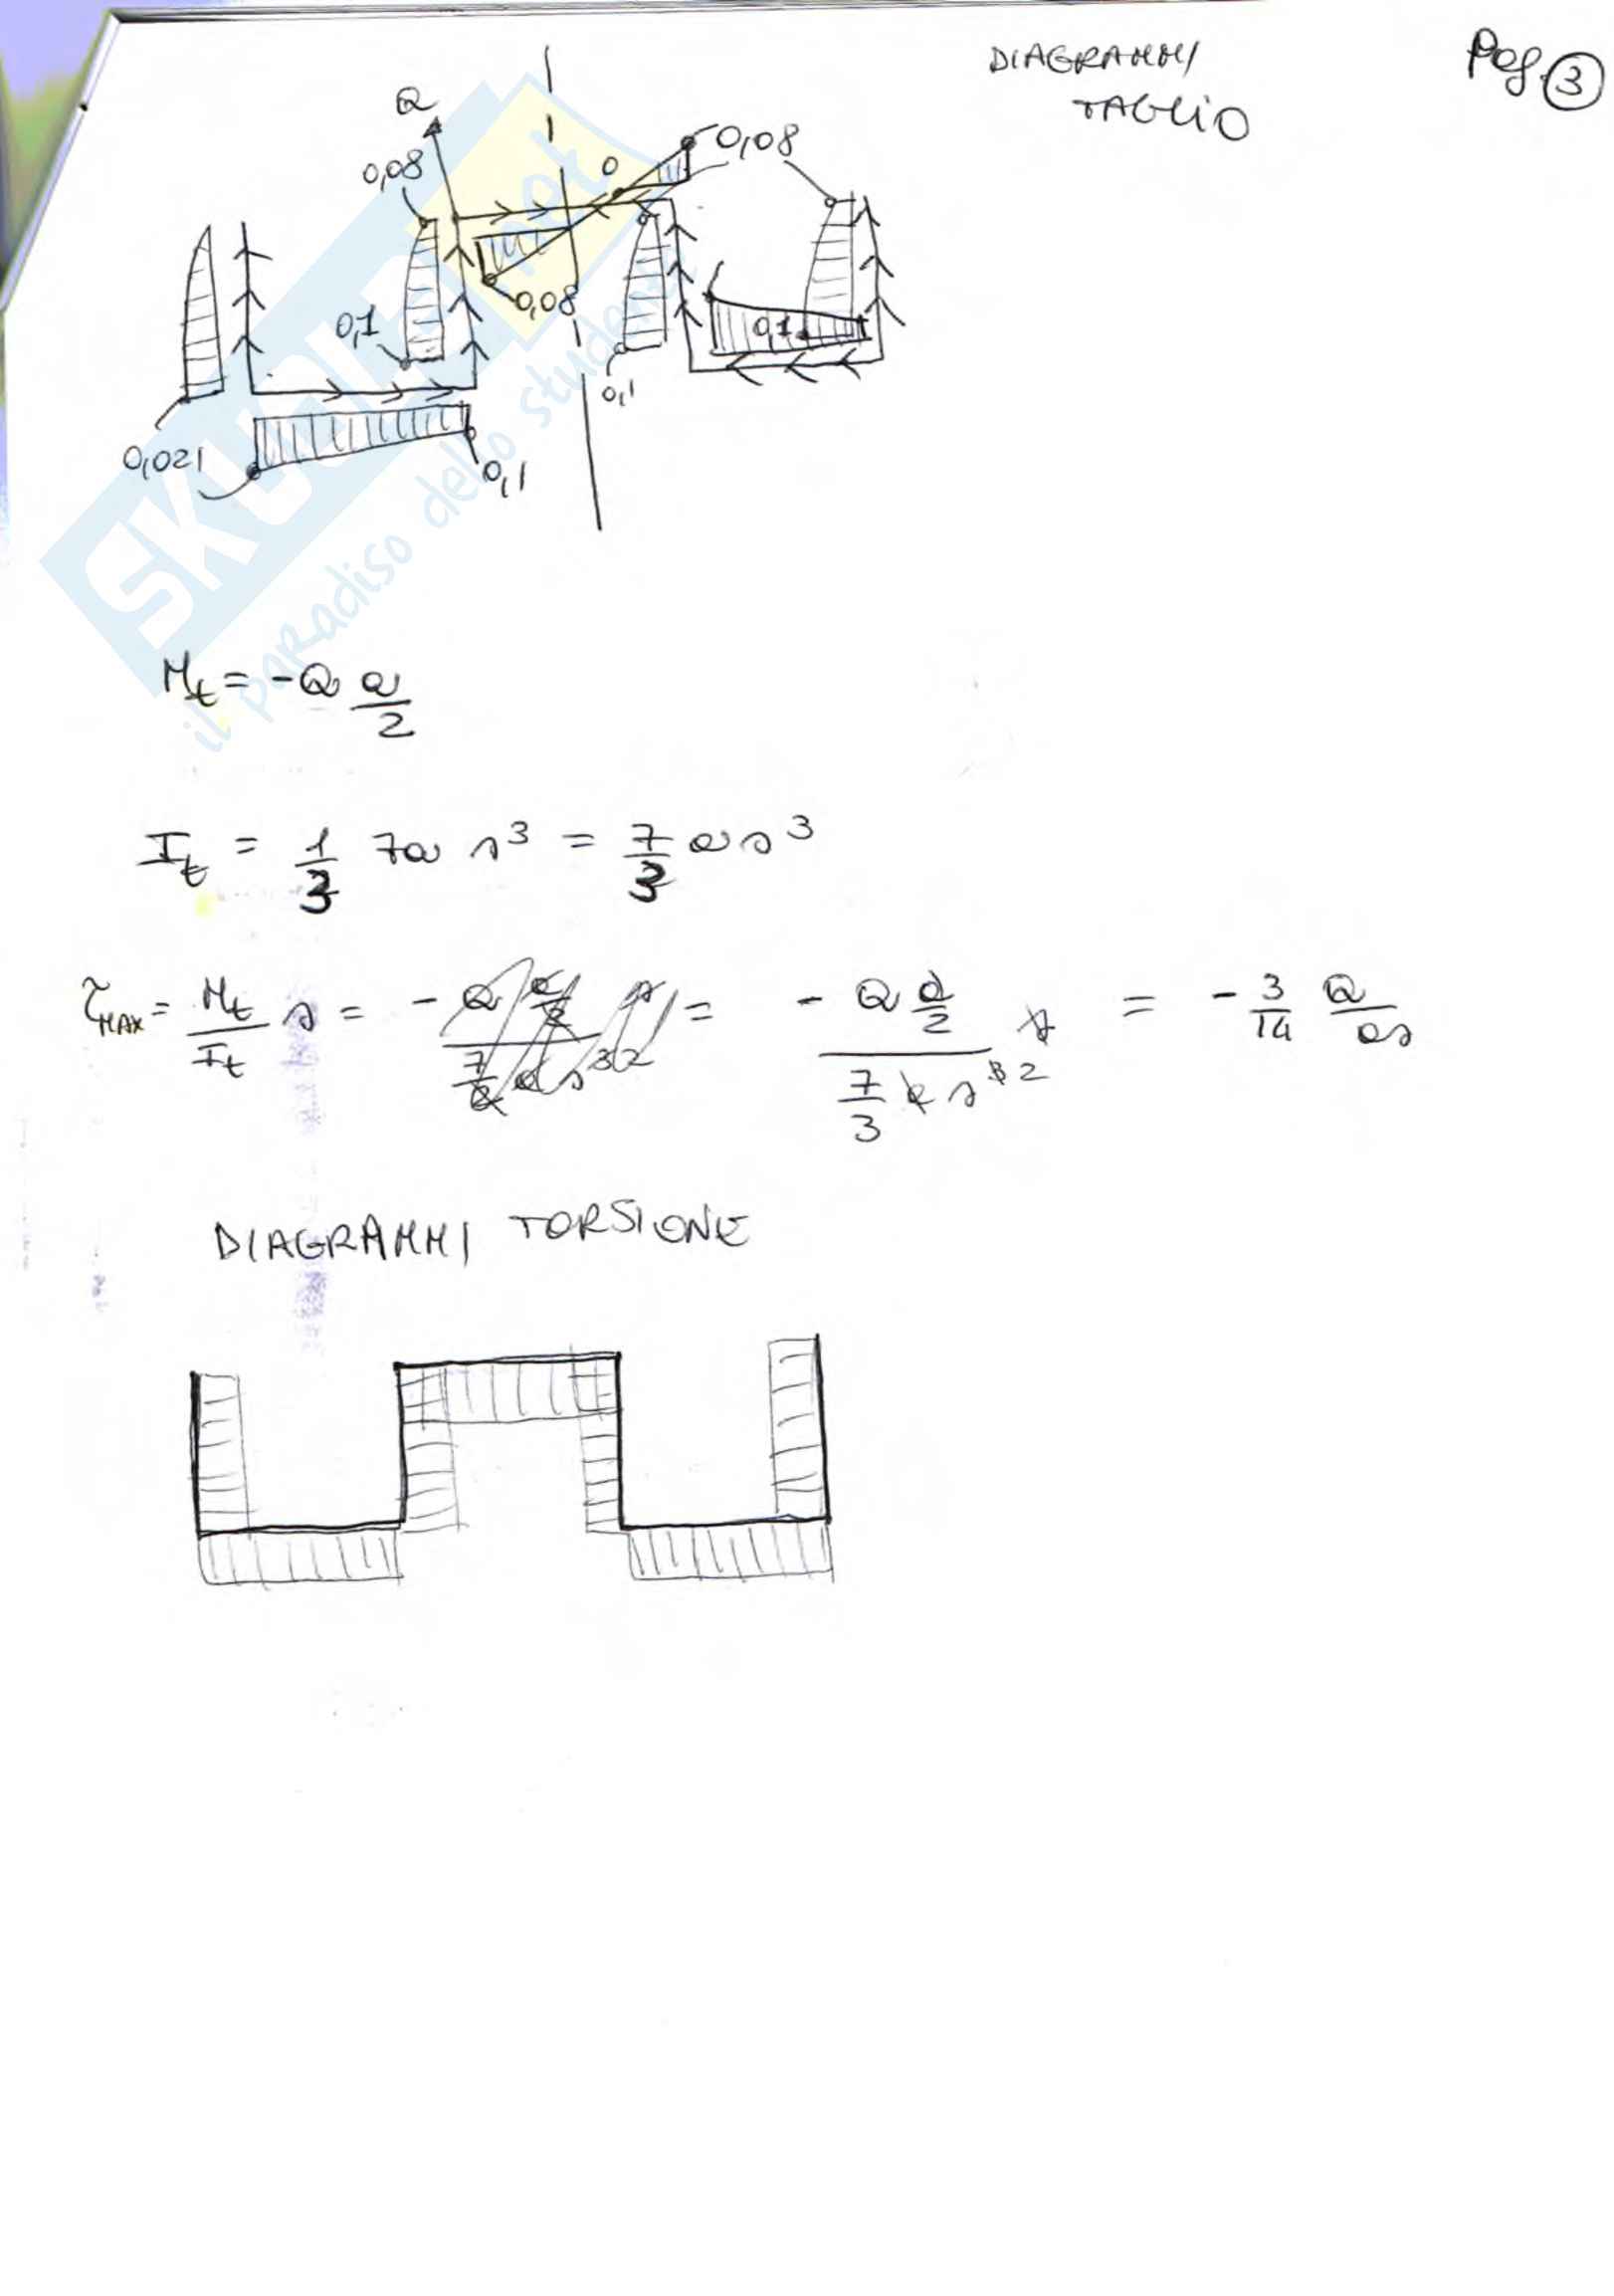 DIAGRAMMI
TAGLIO
Pag. 3
Q
0,08
0
0,08
0,08
0,1
0,1
0,1
0,021
0,1
SKUOLA.net
il paradiso dello studente
Mt = -Q a/2
It = 1/3 7a s³ = 7/3 a s³
τMAX = Mt/It s = - Q a/2 s / 7/3 a s³ 2 = - Q a/2 s / 7/3 a s³ 2 = - 3/14 Q/as
DIAGRAMMI TORSIONE